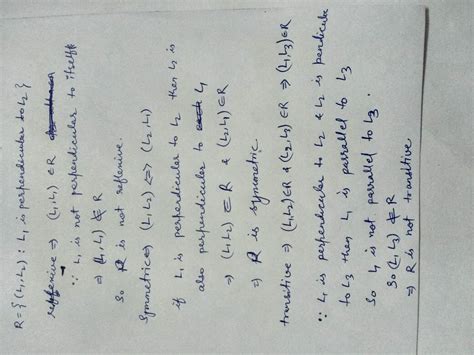 R = {(L₁, L₂) : L₁ is perpendicular to L₂}
reflexive ⇒ (L₁, L₁) ∈ R
∵ L₁ is not perpendicular to itself
⇒ (L₁, L₁) ∉ R
So R is not reflexive.
Symmetric ⇒ (L₁, L₂) ⇔ (L₂, L₁)
if L₁ is perpendicular to L₂ then L₂ is
also perpendicular to L₁
⇒ (L₁, L₂) ∈ R & (L₂, L₁) ∈ R
⇒ R is symmetric.
transitive ⇒ (L₁, L₂) ∈ R & (L₂, L₃) ∈ R ⇒ (L₁, L₃) ∈ R
∵ L₁ is perpendicular to L₂ & L₂ is pendicular
to L₃ then L₁ is parralel to L₃
So L₁ is not parralel to L₃.
So (L₁, L₃) ∉ R
⇒ R is not transitive.